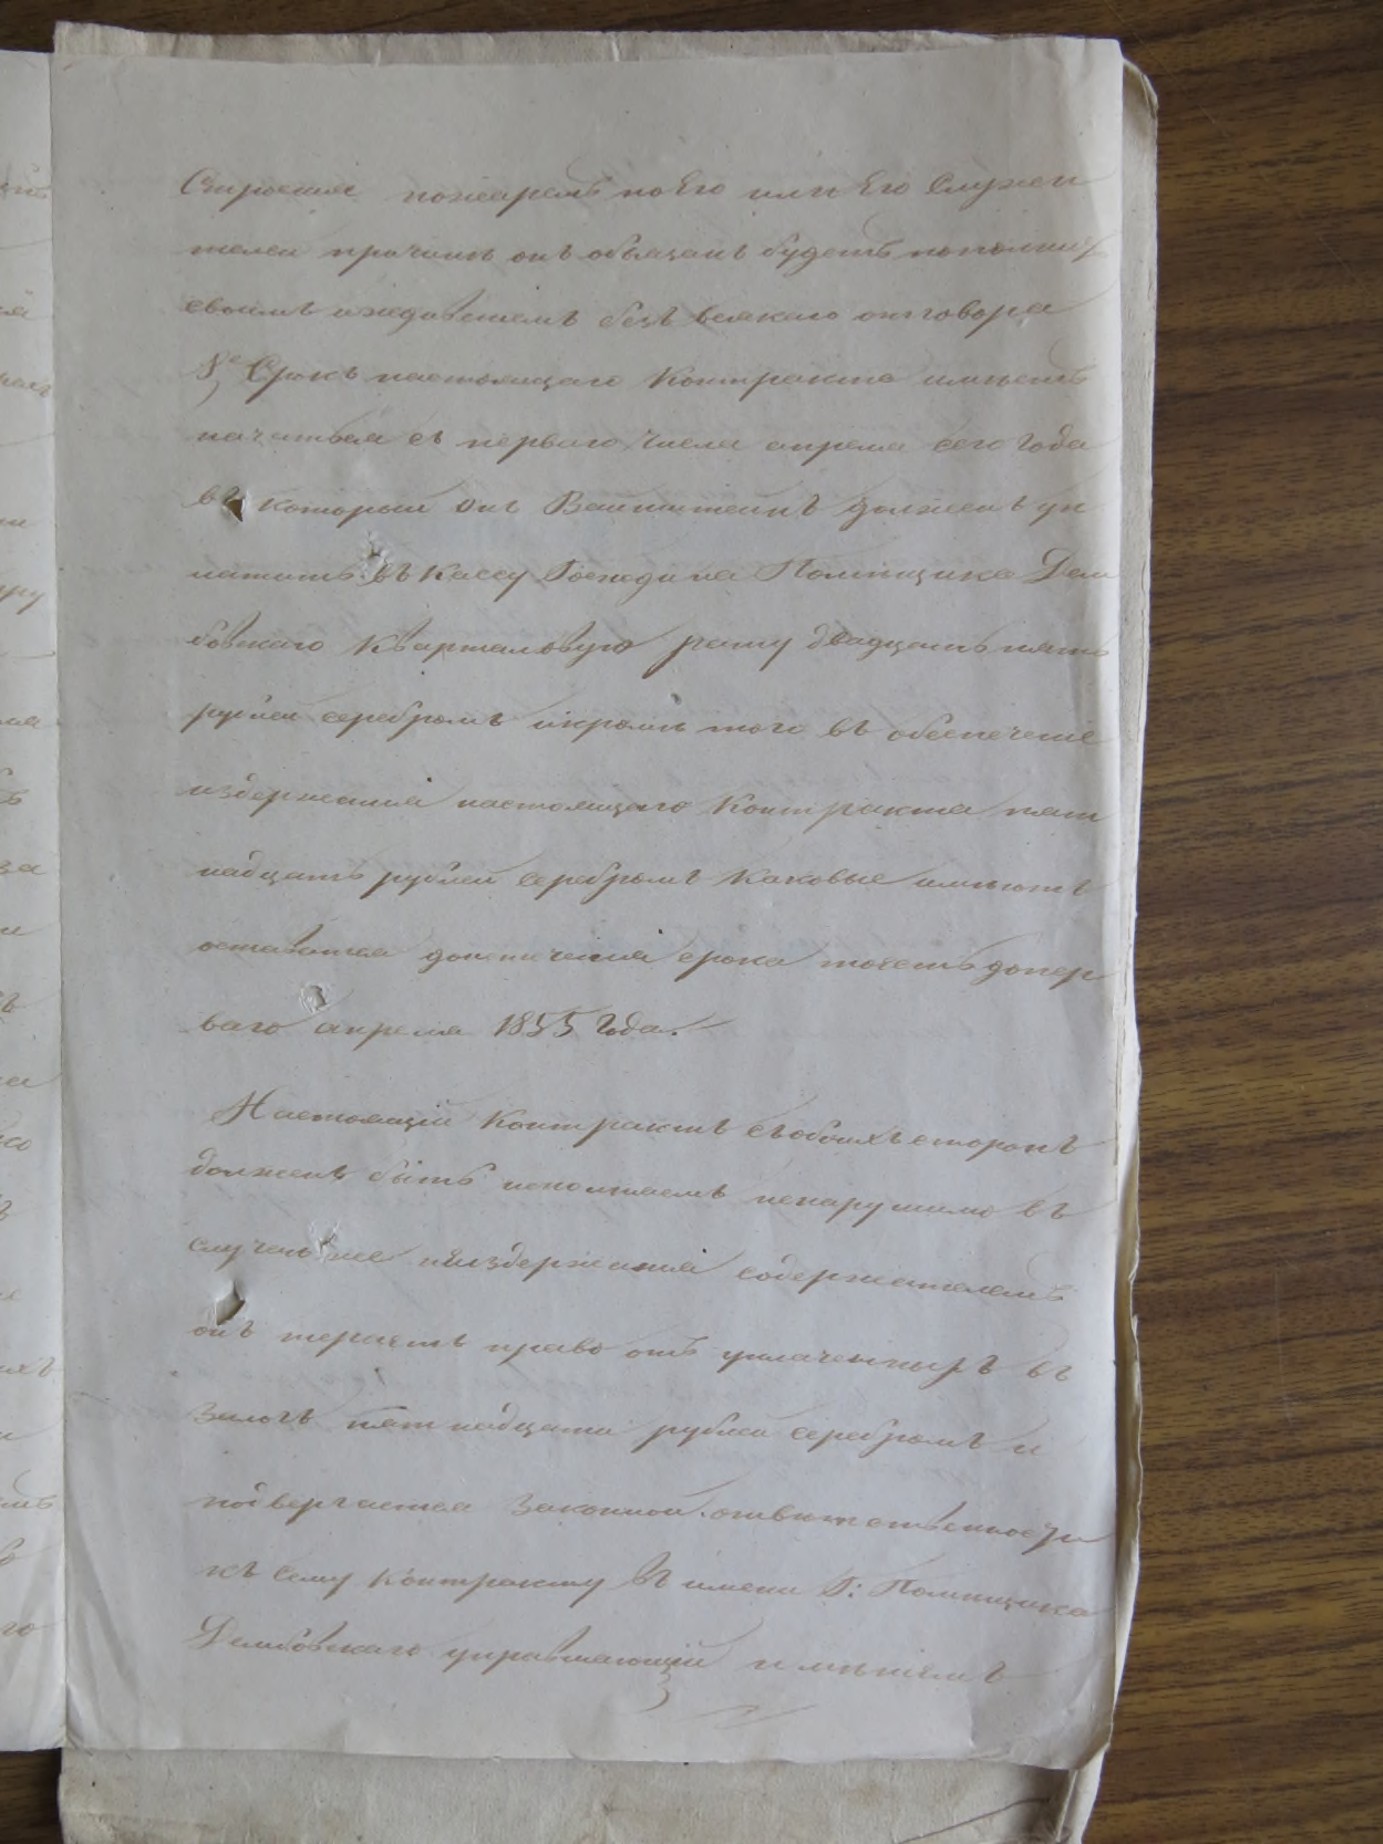 Строеніе пожаромъ по Его или Его Служи
телей причинѣ онъ обязанъ будетъ пополнить
своимъ иждивеніемъ безъ всякаго отговора
8е Срокъ настоящаго Контракта имѣетъ
начаться съ перваго числа апреля сего года
въ который онъ Ваинштейнъ долженъ уп
латить въ кассу Господина Помѣщика Дем
бовскаго Кварталовую рату двадцать пять
рублей серебромъ и кромѣ того въ обеспеченіе
издержанія настоящаго Контракта пят
надцать рублей серебромъ каковые имѣютъ
оставатся до истеченія срока тоесть до пер
ваго апреля 1855 года.
Настоящій Контрактъ съ обоихъ сторонъ
долженъ быть исполняемъ ненарушимо въ
случаѣ же неиздержанія содержателемъ
онъ теряетъ право отъ уплаченныхъ въ
залогъ пятнадцати рублей серебромъ и
подвергается законной ответственности
къ сему контракту въ имени Г: Помѣщика
Дембовскаго управляющій имѣніемъ